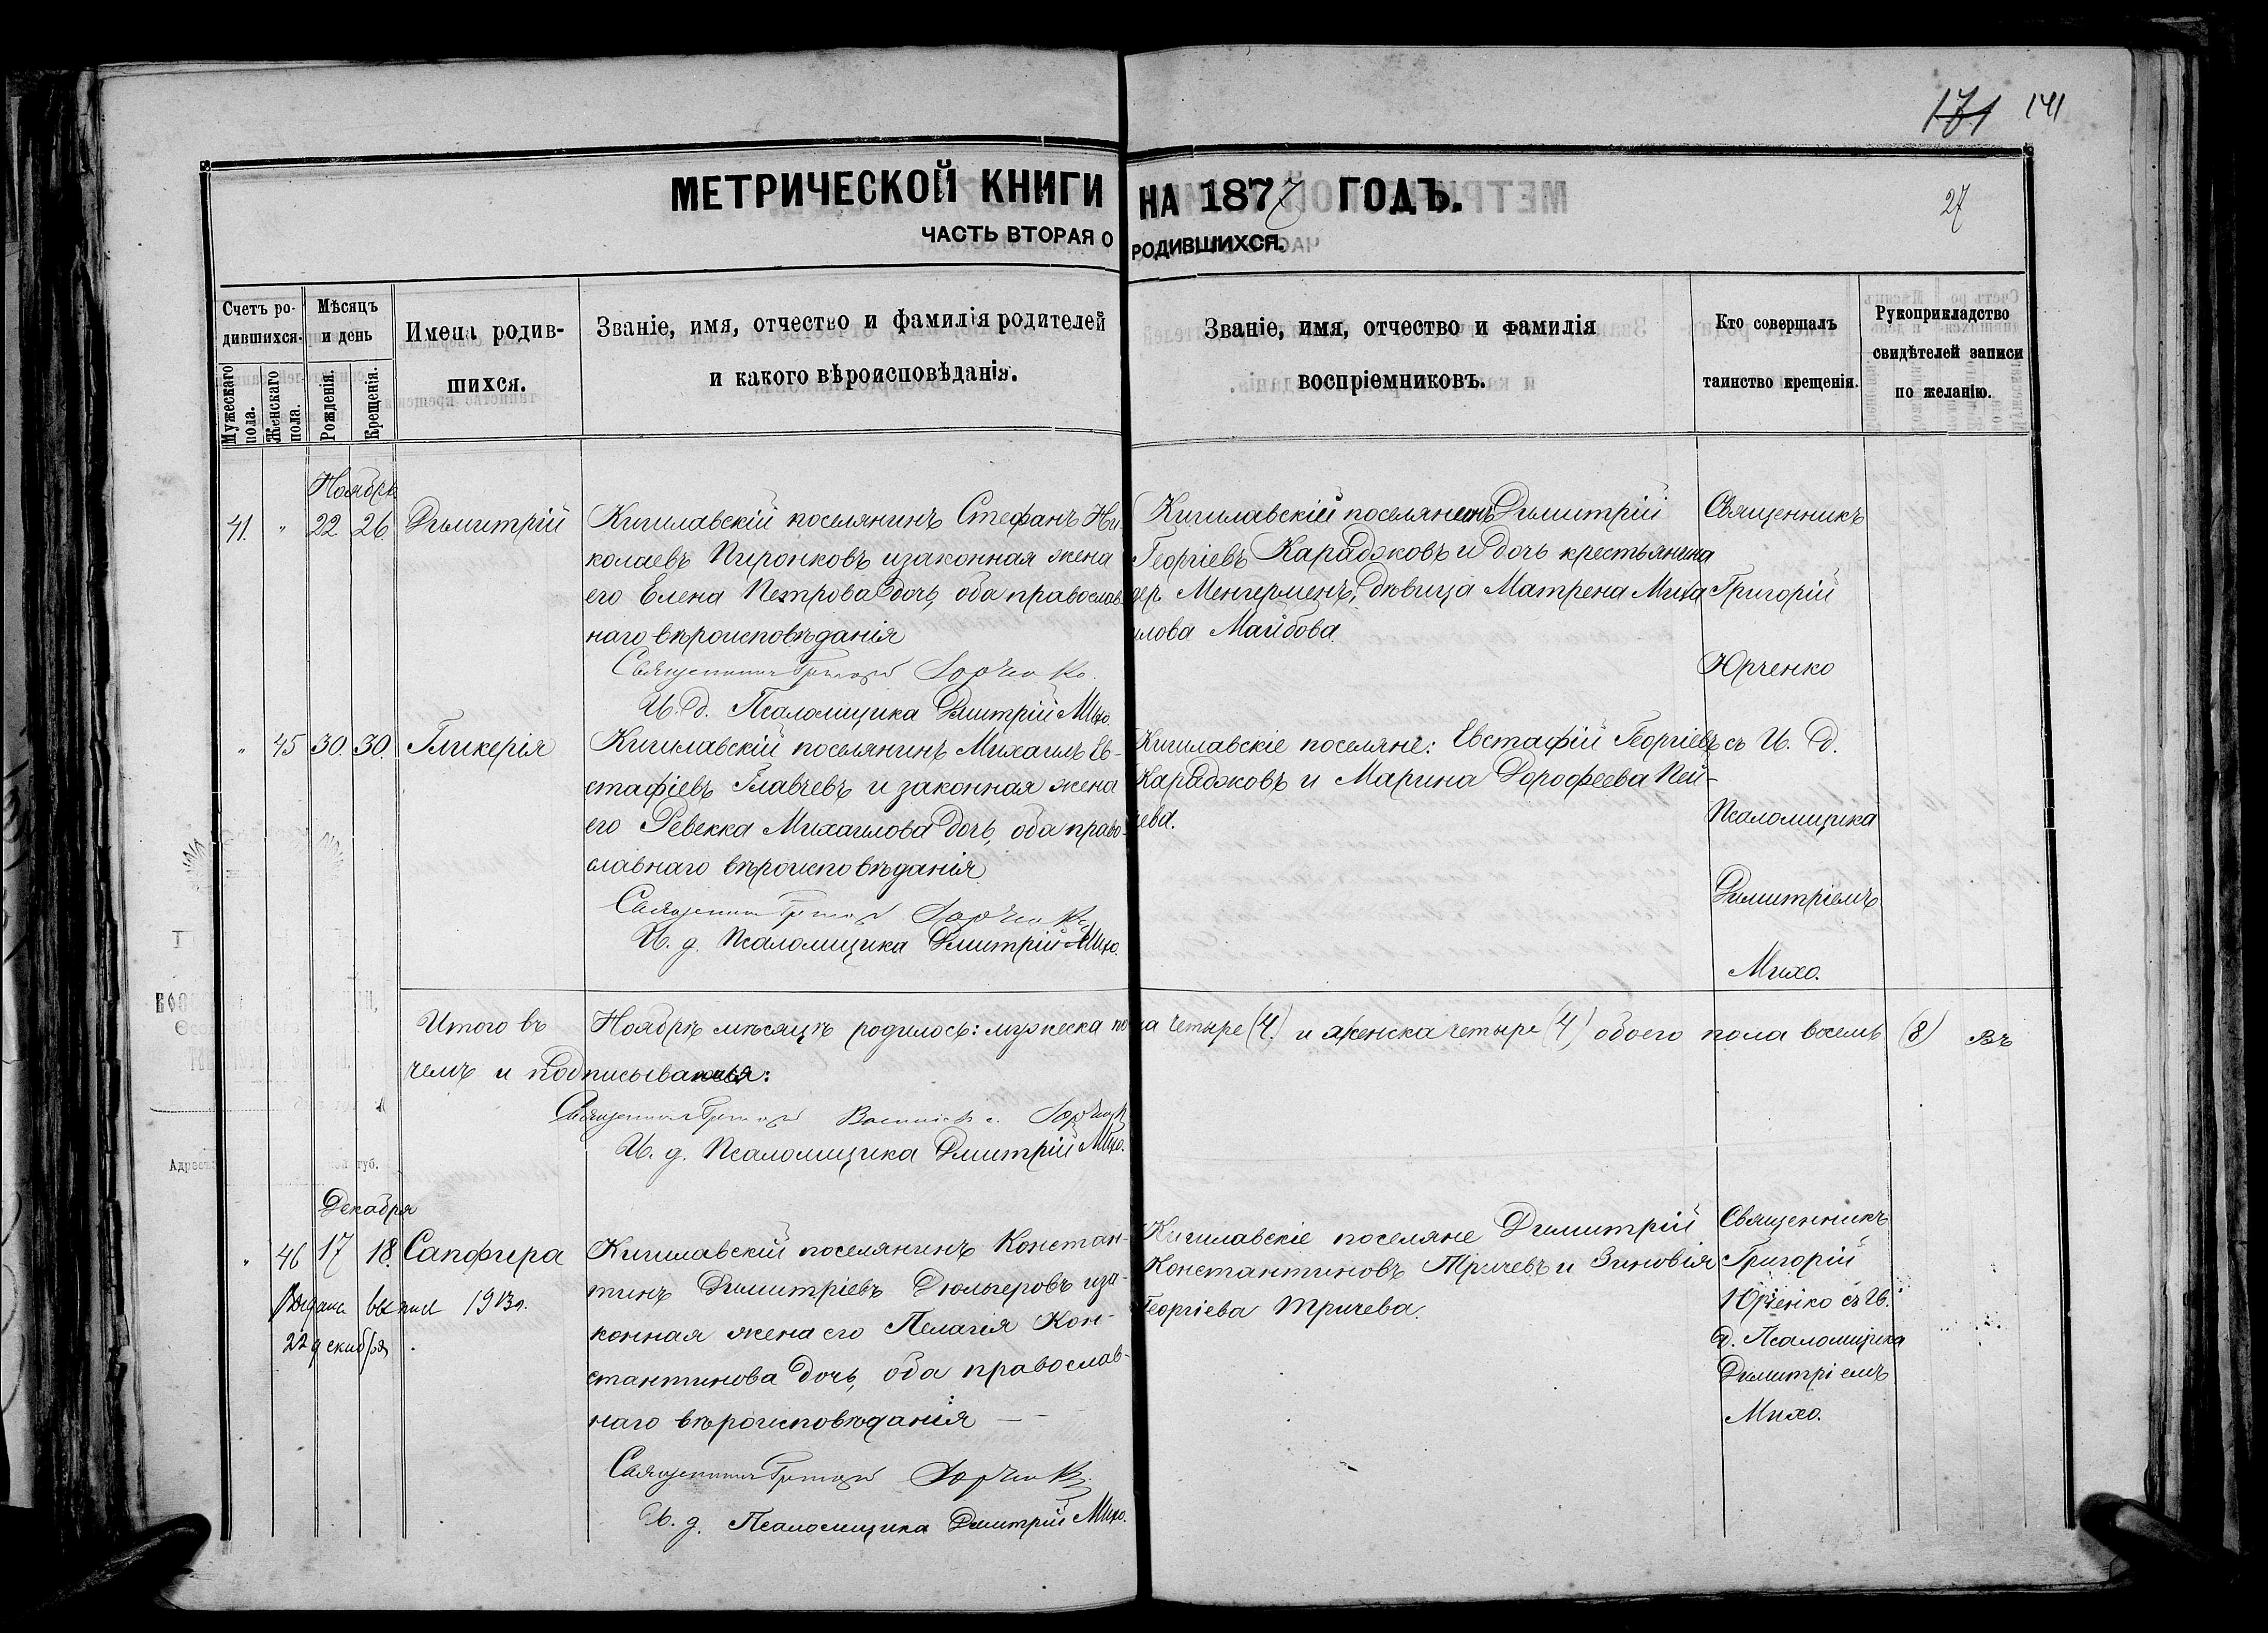 171 141
МЕТРИЧЕСКОЙ КНИГИ НА 1877 ГОДЪ.
27
ЧАСТЬ ВТОРАЯ О РОДИВШИХСЯ.
Счетъ ро-
дившихся.
Мужескаго пола.
Женскаго пола.
Мѣсяцъ
и день
Рожденія.
Крещенія.
Имена родив-
шихся.
Званіе, имя, отчество и фамилія родителей
и какого вѣроисповѣданія.
Званіе, имя, отчество и фамилія
воспріемниковъ.
Кто совершалъ
таинство крещенія.
Рукоприкладство
свидѣтелей записи
по желанію.
Ноябрь
41. " 22 26 Димитрій
Кишлавскій поселянинъ Стефанъ Ни-
колаевъ Пиронковъ и законная жена
его Елена Петрова дочь, оба православ-
наго вѣроисповѣданія
Священникъ Григорій Юрченко.
И. д. Псаломщика Дмитрій Михо.
Кишлавскій поселянинъ Димитрій
Георгіевъ Караджовъ и дочь крестьянина
дер. Менгерменъ, дѣвица Матрена Миха
илова Майбова.
Священникъ
Григорій
Юрченко
съ И. д.
Псаломщика
Димитріемъ
Михо.
" 45 30. 30. Гликерія
Кишлавскій поселянинъ Михаилъ Ев-
стафіевъ Главчевъ и законная жена
его Ревекка Михаилова дочь, оба право-
славнаго вѣроисповѣданія
Священникъ Григорій Юрченко
И. д. Псаломщика Дмитрій Михо.
Кишлавскіе поселяне: Евстафій Георгіевъ
Караджовъ и Марина Дорофеева Пей-
чева.
Итого въ Ноябрѣ мѣсяцѣ родилось: мужеска пола четыре (4.) и женска четыре (4) обоего пола восемь (8) Въ
чемъ и подписываемся:
Священникъ Григорій Юрченко
И. д. Псаломщика Дмитрій Михо.
Декабря
" 46 17 18. Сапфира
Выдана выпись 1913 г.
22 декабря.
Кишлавскій поселянинъ Констан-
тинъ Димитріевъ Дюльгеровъ и за-
конная жена его Пелагія Кон-
стантинова дочь, оба православ-
наго вѣроисповѣданія —
Священникъ Григорій Юрченко
И. д. Псаломщика Дмитрій Михо.
Кишлавскіе поселяне Димитрій
Константиновъ Тричевъ и Зиновія
Георгіева Тричева.
Священникъ
Григорій
Юрченко съ И.
д. Псаломщика
Димитріемъ
Михо.